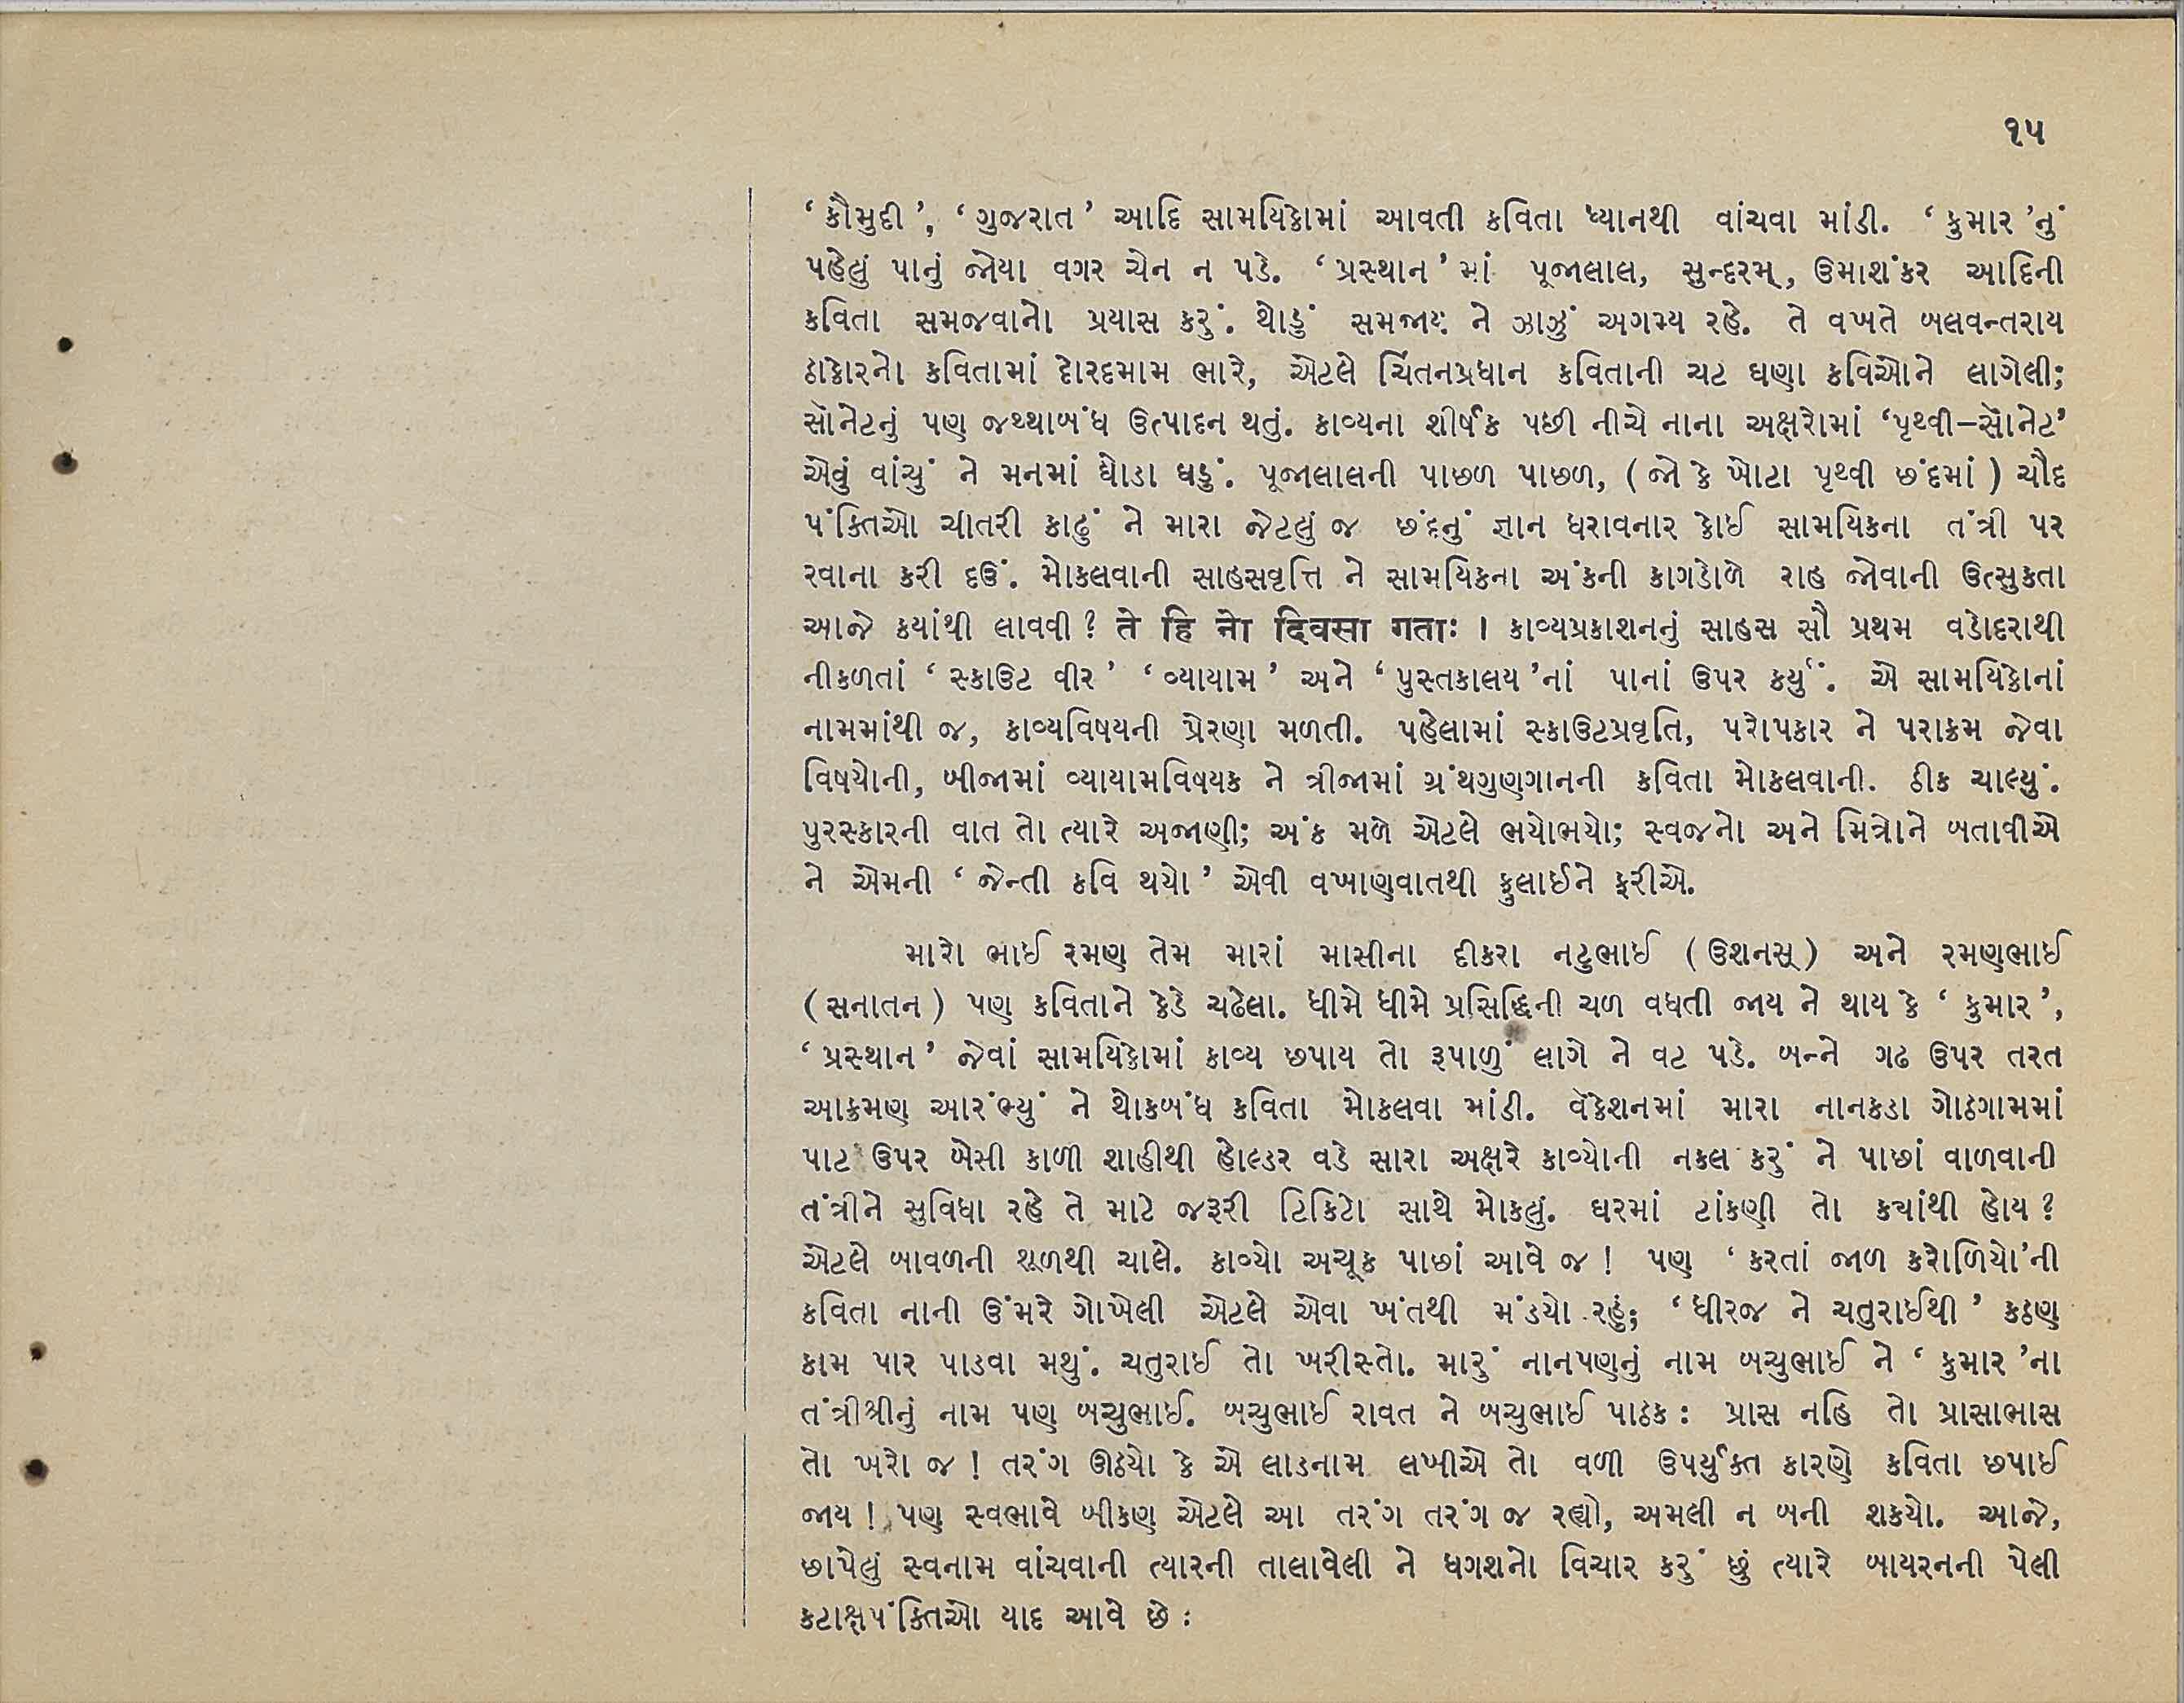 ૧૫
‘કૌમુદી’, ‘ગુજરાત’ આદિ સામયિકોમાં આવતી કવિતા ધ્યાનથી વાંચવા માંડી. ‘કુમાર’નું
પહેલું પાનું જોયા વગર ચેન ન પડે. ‘પ્રસ્થાન’માં પૂજાલાલ, સુન્દરમ્, ઉમાશંકર આદિની
કવિતા સમજવાનો પ્રયાસ કરું. થોડું સમજાય ને ઝાઝું અગમ્ય રહે. તે વખતે બલવન્તરાય
ઠાકોરનો કવિતામાં દોરદમામ ભારે, એટલે ચિંતનપ્રધાન કવિતાની ચટ ઘણા કવિઓને લાગેલી;
સૉનેટનું પણ જથ્થાબંધ ઉત્પાદન થતું. કાવ્યના શીર્ષક પછી નીચે નાના અક્ષરોમાં ‘પૃથ્વી–સૉનેટ’
એવું વાંચું ને મનમાં ઘોડા ઘડું. પૂજાલાલની પાછળ પાછળ, (જો કે ખોટા પૃથ્વી છંદમાં) ચૌદ
પંક્તિઓ ચીતરી કાઢું ને મારા જેટલું જ છંદનું જ્ઞાન ધરાવનાર કોઈ સામયિકના તંત્રી પર
રવાના કરી દઉં. મોકલવાની સાહસવૃત્તિ ને સામયિકના અંકની કાગડોળે રાહ જોવાની ઉત્સુકતા
આજે કયાંથી લાવવી? ते हि नो दिवसा गताः । કાવ્યપ્રકાશનનું સાહસ સૌ પ્રથમ વડોદરાથી
નીકળતાં ‘સ્કાઉટ વીર’ ‘વ્યાયામ’ અને ‘પુસ્તકાલય’નાં પાનાં ઉપર કર્યું. એ સામયિકોનાં
નામમાંથી જ, કાવ્યવિષયની પ્રેરણા મળતી. પહેલામાં સ્કાઉટપ્રવૃતિ, પરોપકાર ને પરાક્રમ જેવા
વિષયોની, બીજામાં વ્યાયામવિષયક ને ત્રીજામાં ગ્રંથગુણગાનની કવિતા મોકલવાની. ઠીક ચાલ્યું.
પુરસ્કારની વાત તો ત્યારે અજાણી; અંક મળે એટલે ભયોભયો; સ્વજનો અને મિત્રોને બતાવીએ
ને એમની ‘જેન્તી કવિ થયો’ એવી વખાણવાતથી ફુલાઈને ફરીએ.
મારો ભાઈ રમણ તેમ મારાં માસીના દીકરા નટુભાઈ (ઉશનસ્) અને રમણભાઈ
(સનાતન) પણ કવિતાને કેડે ચઢેલા. ધીમે ધીમે પ્રસિદ્ધિની ચળ વધતી જાય ને થાય કે ‘કુમાર’,
‘પ્રસ્થાન’ જેવાં સામયિકોમાં કાવ્ય છપાય તો રૂપાળું લાગે ને વટ પડે. બન્ને ગઢ ઉપર તરત
આક્રમણ આરંભ્યું ને થોકબંધ કવિતા મોકલવા માંડી. વૅકેશનમાં મારા નાનકડા ગોઠગામમાં
પાટ ઉપર બેસી કાળી શાહીથી હોલ્ડર વડે સારા અક્ષરે કાવ્યોની નકલ કરું ને પાછાં વાળવાની
તંત્રીને સુવિધા રહે તે માટે જરૂરી ટિકિટો સાથે મોકલું. ઘરમાં ટાંકણી તો કયાંથી હોય?
એટલે બાવળની શૂળથી ચાલે. કાવ્યો અચૂક પાછાં આવે જ! પણ ‘કરતાં જાળ કરોળિયો’ની
કવિતા નાની ઉંમરે ગોખેલી એટલે એવા ખંતથી મંડયો રહું; ‘ધીરજ ને ચતુરાઈથી’ કઠણ
કામ પાર પાડવા મથું. ચતુરાઈ તો ખરીસ્તો. મારું નાનપણનું નામ બચુભાઈ ને ‘કુમાર’ના
તંત્રીશ્રીનું નામ પણ બચુભાઈ. બચુભાઈ રાવત ને બચુભાઈ પાઠક: પ્રાસ નહિ તો પ્રાસાભાસ
તો ખરો જ! તરંગ ઊઠયો કે એ લાડનામ લખીએ તો વળી ઉપર્યુક્ત કારણે કવિતા છપાઈ
જાય! પણ સ્વભાવે બીકણ એટલે આ તરંગ તરંગ જ રહ્યો, અમલી ન બની શકયો. આજે,
છાપેલું સ્વનામ વાંચવાની ત્યારની તાલાવેલી ને ધગશનો વિચાર કરું છું ત્યારે બાયરનની પેલી
કટાક્ષપંક્તિઓ યાદ આવે છે: